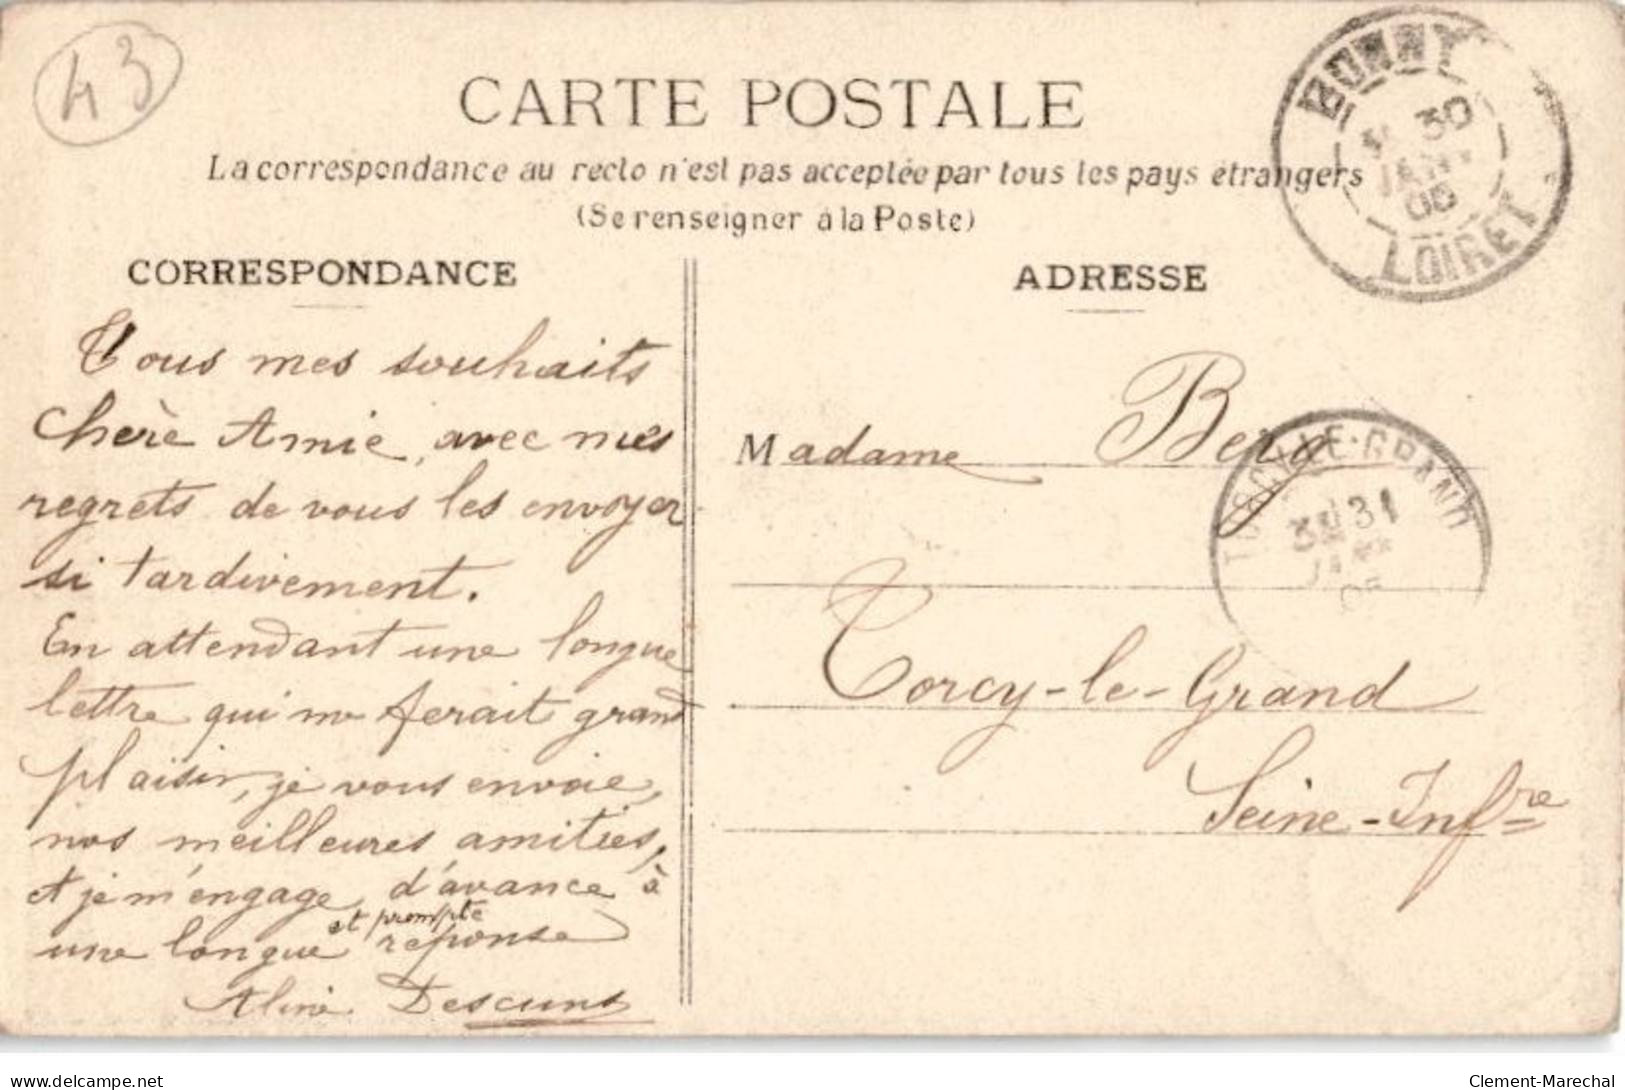 43
CARTE POSTALE
La correspondance au recto n'est pas acceptée par tous les pays étrangers
(Se renseigner à la Poste)
BONNY
30
JANV
LOIRET
CORRESPONDANCE
Tous mes souhaits
chère Amie, avec mes
regrets de vous les envoyer
si tardivement.
En attendant une longue
lettre qui me ferait grand
plaisir, je vous envoie,
nos meilleures amitiés,
et je m'engage d'avance à
une longue et prompte réponse
Aline Descuns
ADRESSE
Madame Berg
TORCY-LE-GRAND
31
Torcy-le-Grand
Seine-Infre
delcampe.net
Clement-Marechal